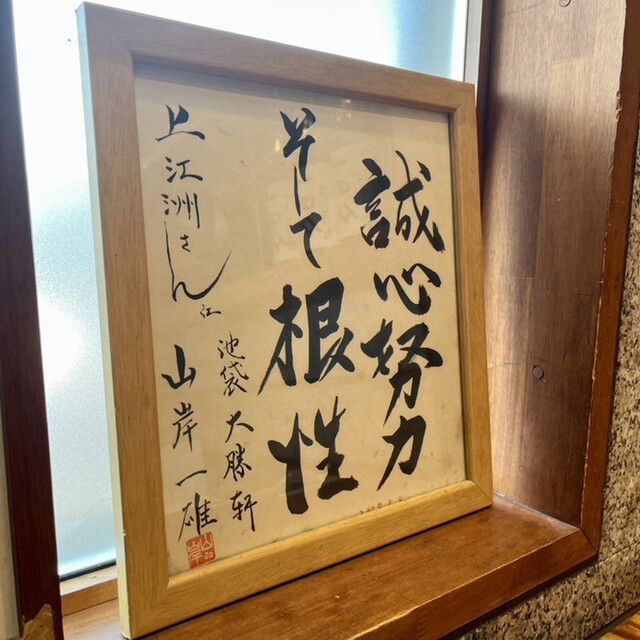 誠心努力
そして根性
池袋大勝軒
上江洲さん江
山岸一雄